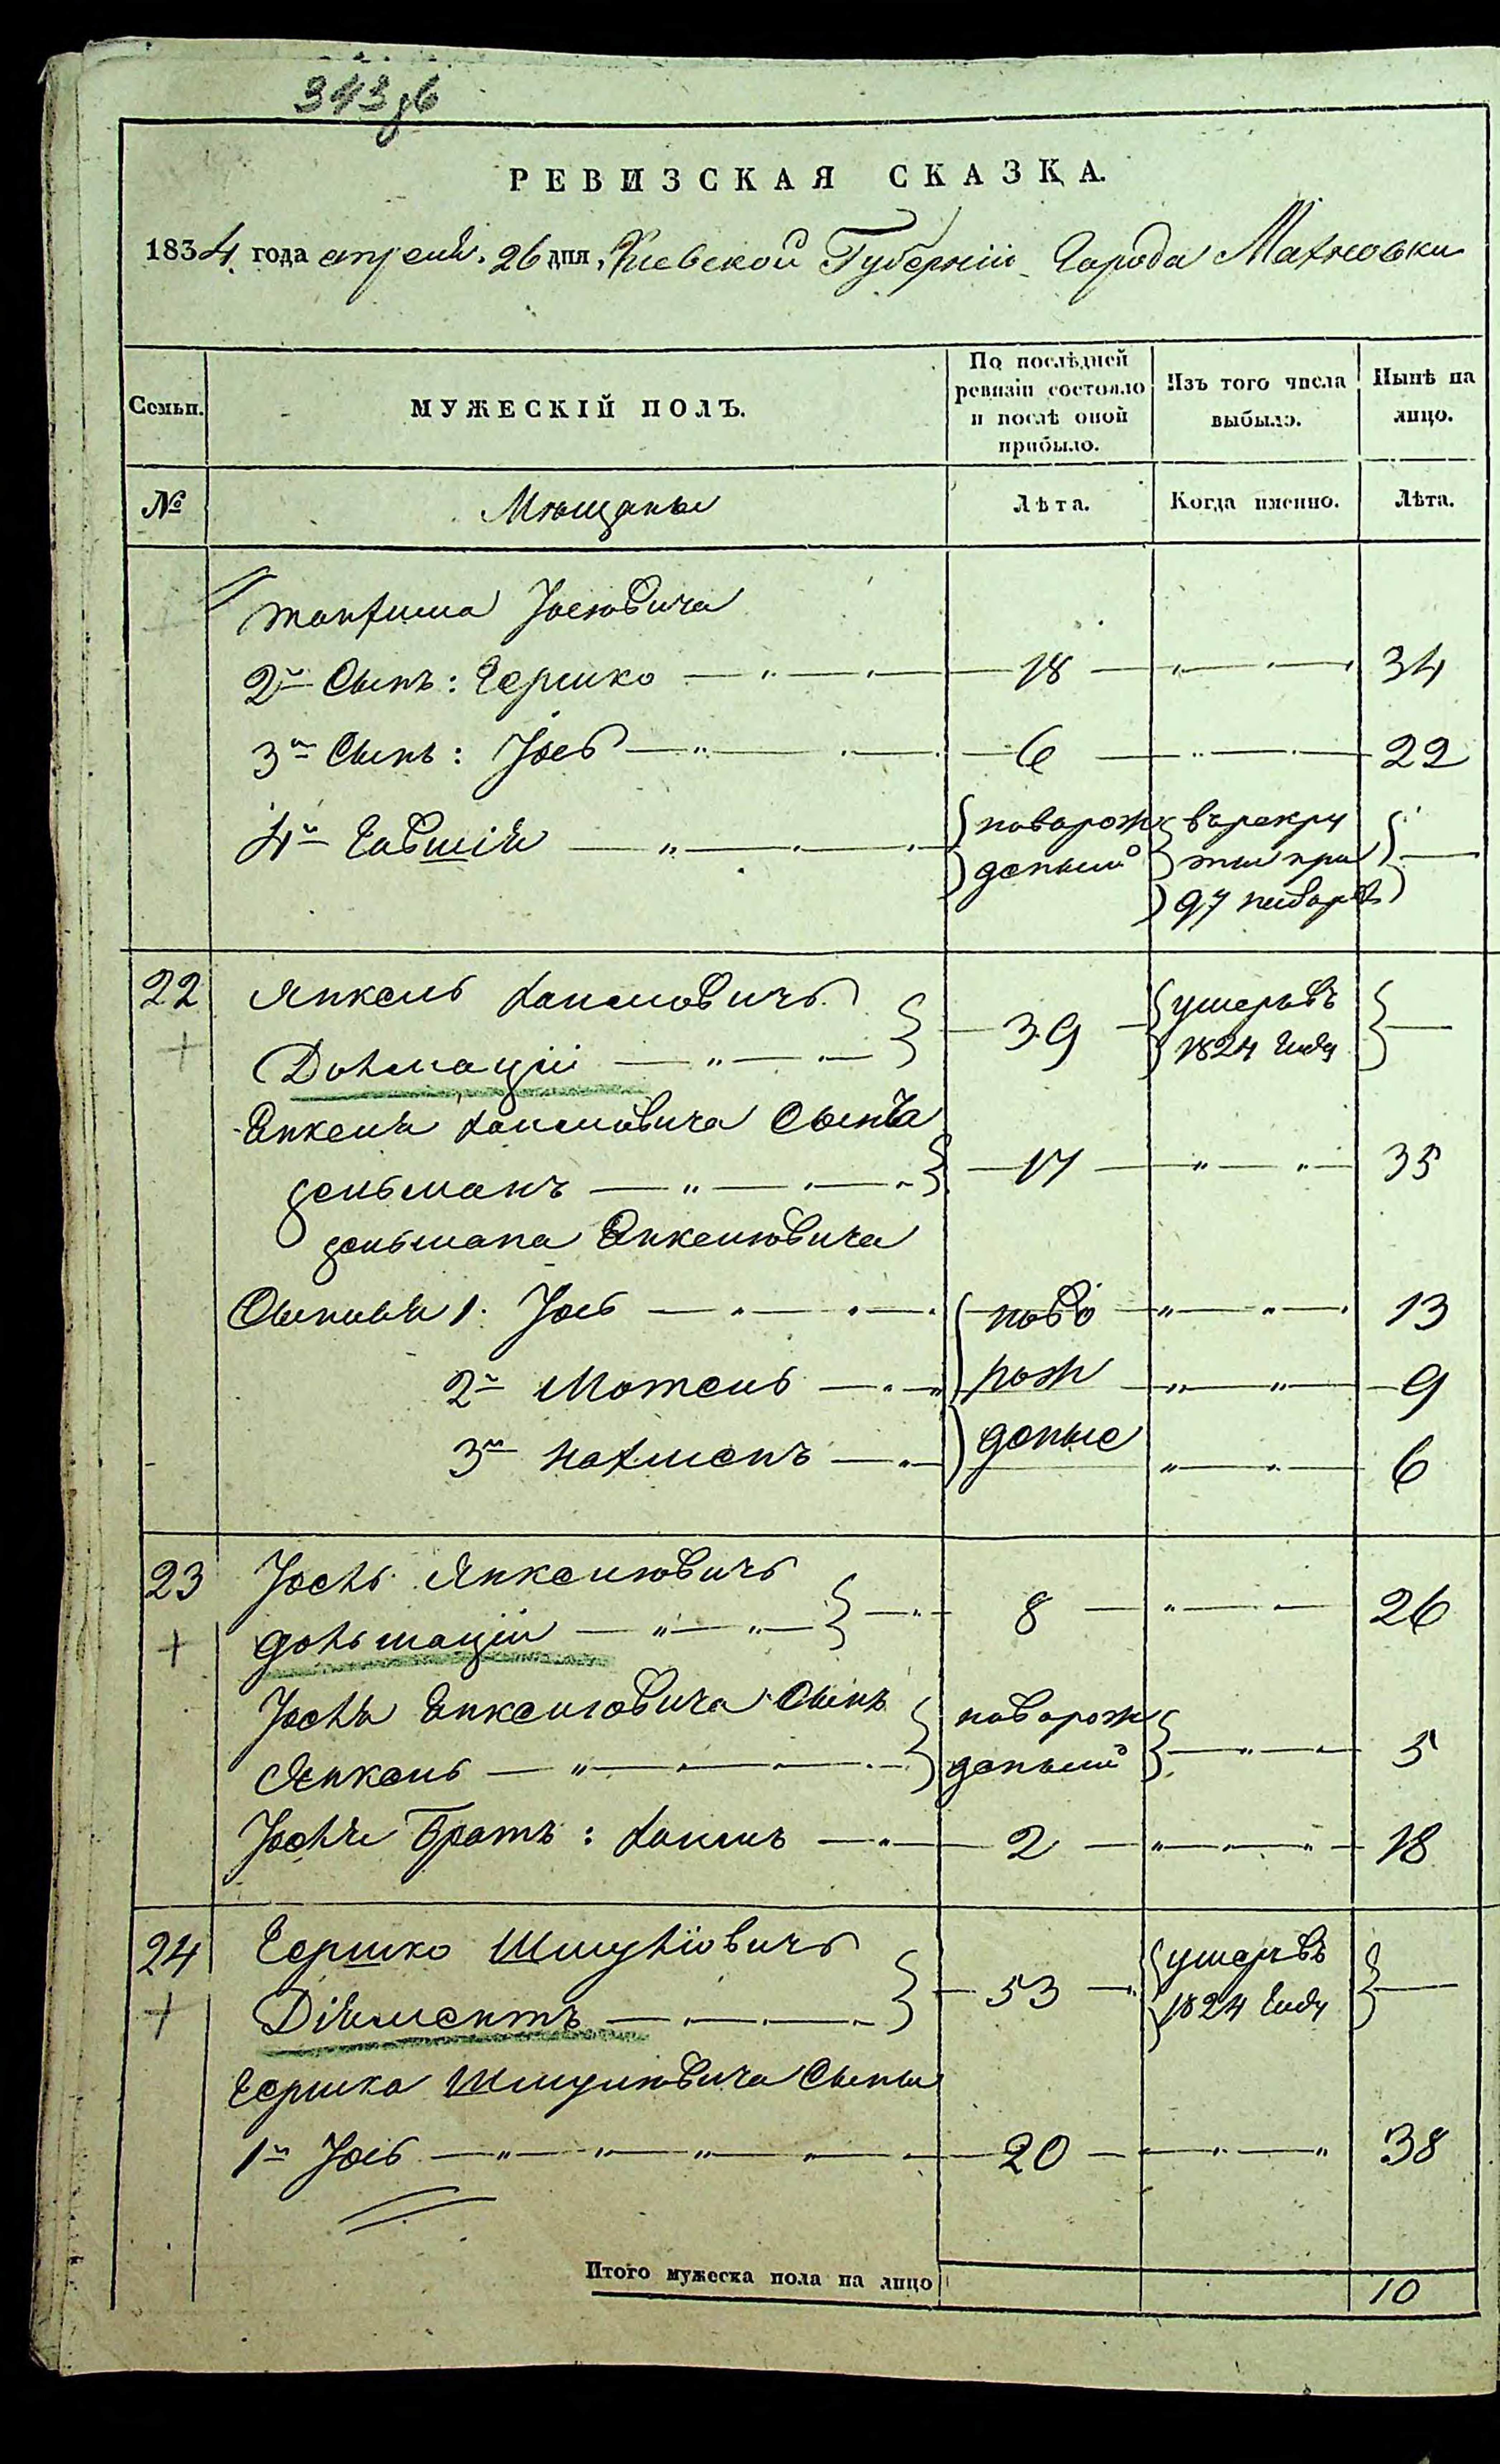 343 об
РЕВИЗСКАЯ СКАЗКА.
1834 года апреля 26 дня, Киевской Губернии Города Махновки
Семьи.
МУЖЕСКІЙ ПОЛЪ.
По послѣдней
ревизіи состояло
и послѣ оной
прибыло.
Изъ того числа
выбыло.
Нынѣ на
лицо.
№
Мѣщаны
Лѣта.
Когда именно.
Лѣта.
Іосювича
2й Сынъ: Гершко 18 34
3й Сынъ: Іось 6 22
4й Говшія
новорож
денный
въ рекру
ты при
97 наборѣ
22 Янкель Хаимовичъ
Дохмацій 39
умеръ въ
1824 году
Янкеля Хаимовича Сынъ
Зельманъ 17 35
Зельмана Янкелювича
Сыновья 1. Іось 13
2й Мотель 9
3й Нахманъ 6
ново
рож
деные
23 Іосъ Янкелювичъ
Дохмацій 8 26
Янкелювича Сынъ
Янкель
новорож
денный
5
Братъ: Хаимъ 2 18
24 Гершко Шмулiовичъ
Діяментъ 53
умеръ въ
1824 году
Гершка Шмулювича Сыны
1й Іось 20 38
Итого мужеска пола на лицо 10